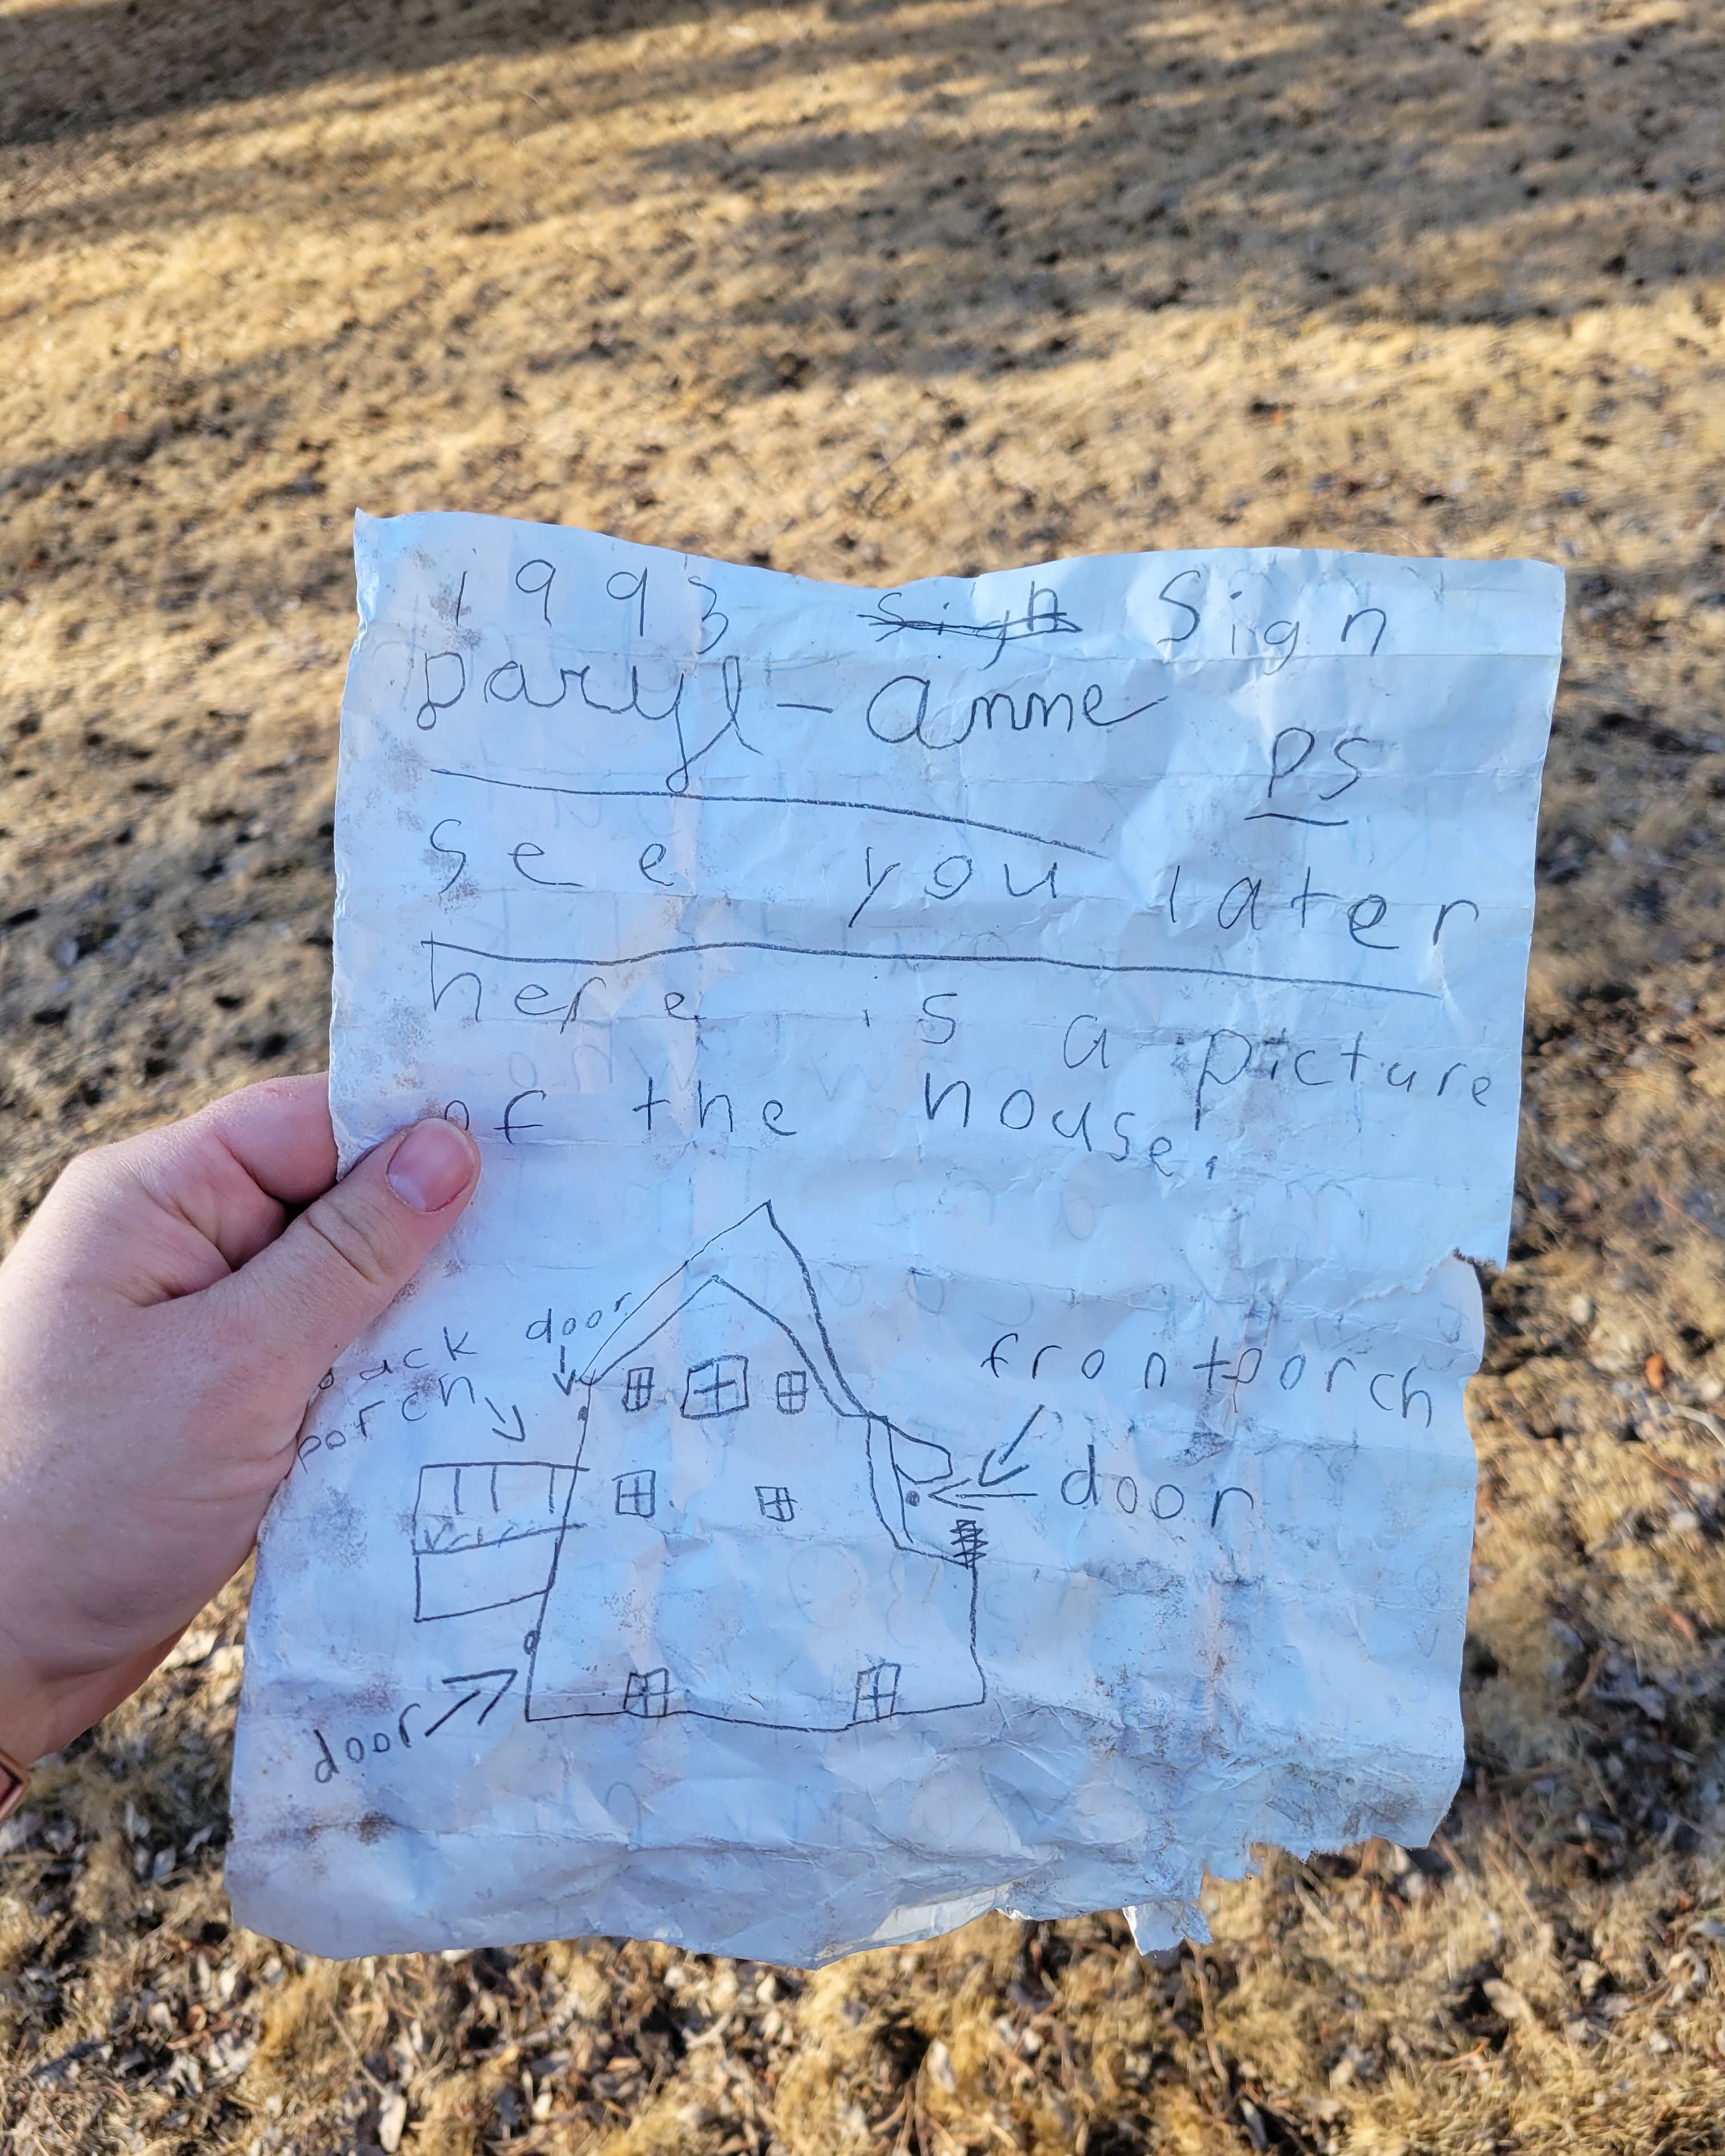 1993 Sign Sign
Daryl-Anne
PS
see you later
here is a picture
of the house!
door
back
porch
frontporch
door
door